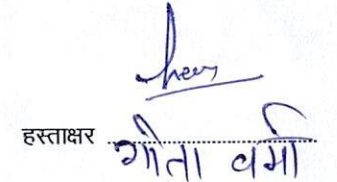 हस्ताक्षर गीता वर्मा